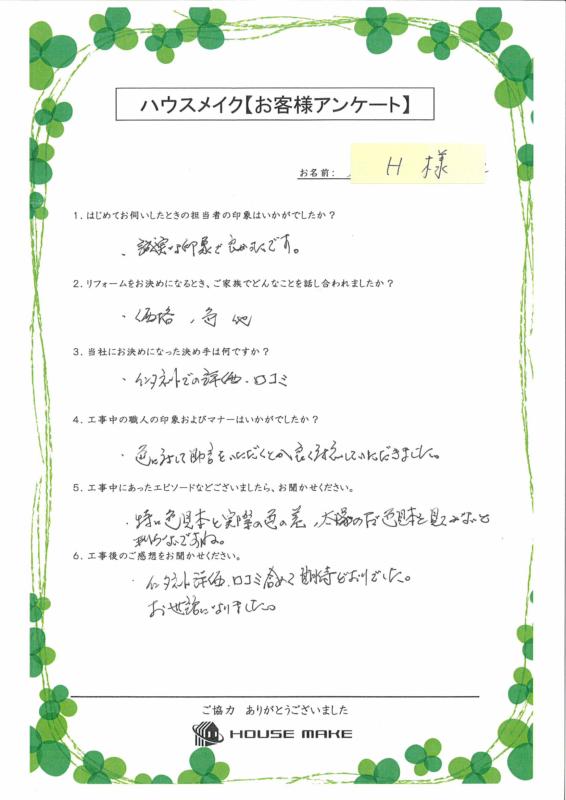 ハウスメイク【お客様アンケート】
お名前: H 様
1. はじめてお伺いしたときの担当者の印象はいかがでしたか?
・誠実な印象で良かったです。
2. リフォームをお決めになるとき、ご家族でどんなことを話し合われましたか?
・価格、色 他
3. 当社にお決めになった決め手は何ですか?
・インタネットでの評価・口コミ
4. 工事中の職人の印象およびマナーはいかがでしたか?
・色に対して助言をいただくとか良く対応していただきました。
5. 工事中にあったエピソードなどございましたら、お聞かせください。
・特に色見本と実際の色の差、大場の色見本を見てみないと
判らないですね。
6. 工事後のご感想をお聞かせください。
・インタネット評価、口コミ含めて期待どおりでした。
お世話になりました。
ご協力 ありがとうございました
HOUSE MAKE